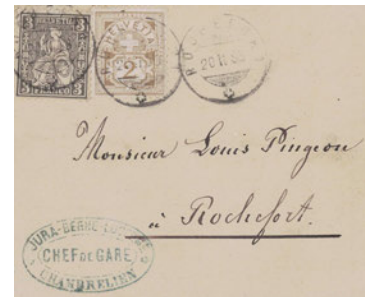 3 3
HELVETIA
2
FRANCO
20 II 83
Monsieur Louis Pingeon
à Rochefort.
JURA-BERNE-LUCERNE
CHEF DE GARE
CHAMBRELIEN